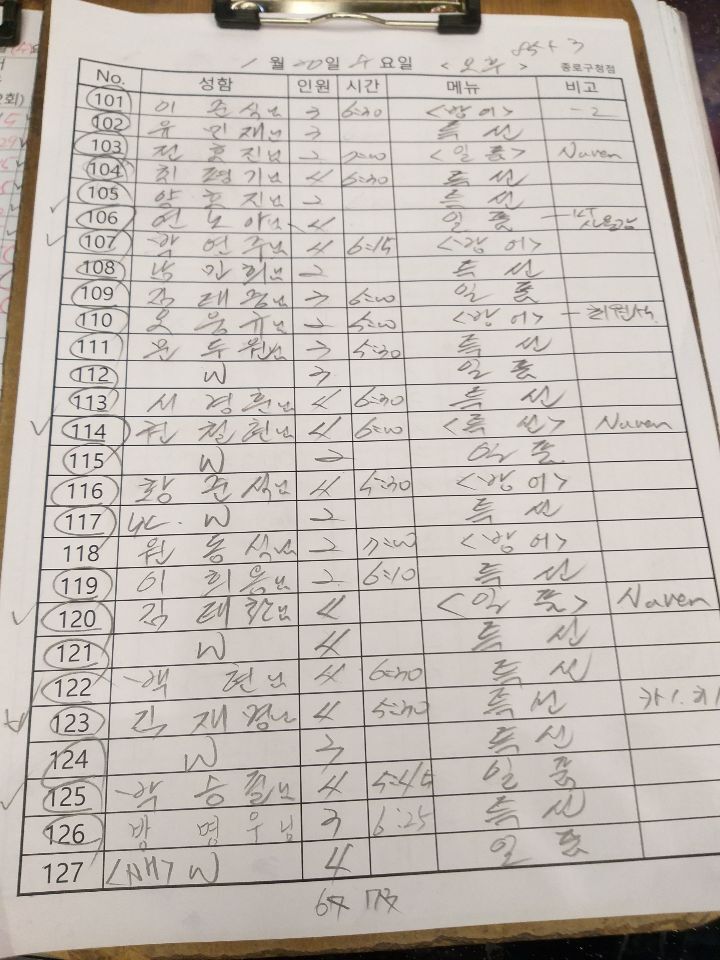 월 20일 요일 <오후>
종로구청점
No. 성함 인원 시간 메뉴 비고
101 이 준식님 3 6:30 <방어> -2
102 유 민재님 3 특선
103 전 효진님 2 7:00 <일품> Naver
104 최 평기님 4 6:30 특선
105 양 효진님 2 특선
106 4 일품
107 박연주님 4 6:15 <방어>
108 2 특선
109 김태경님 3 6:00 일품
110 2 5:00 <방어>
111 윤두원님 3 5:30 특선
112 W 3 일품
113 서경훈님 4 6:30 특선
114 천철현님 4 6:00 <특선> Naver
115 W 2 일품
116 황준석님 4 5:30 <방어>
117 W 2 특선
118 원동식님 2 7:00 <방어>
119 이희용님 2 6:10 특선
120 김태환님 4 <일품> Naver
121 W 4 특선
122 박현님 4 6:30 특선
123 재경님 4 5:30 특선
124 W 3 특선
125 박승필님 4 5:45 일품
126 방명우님 3 6:25 특선
127 W 4 일품